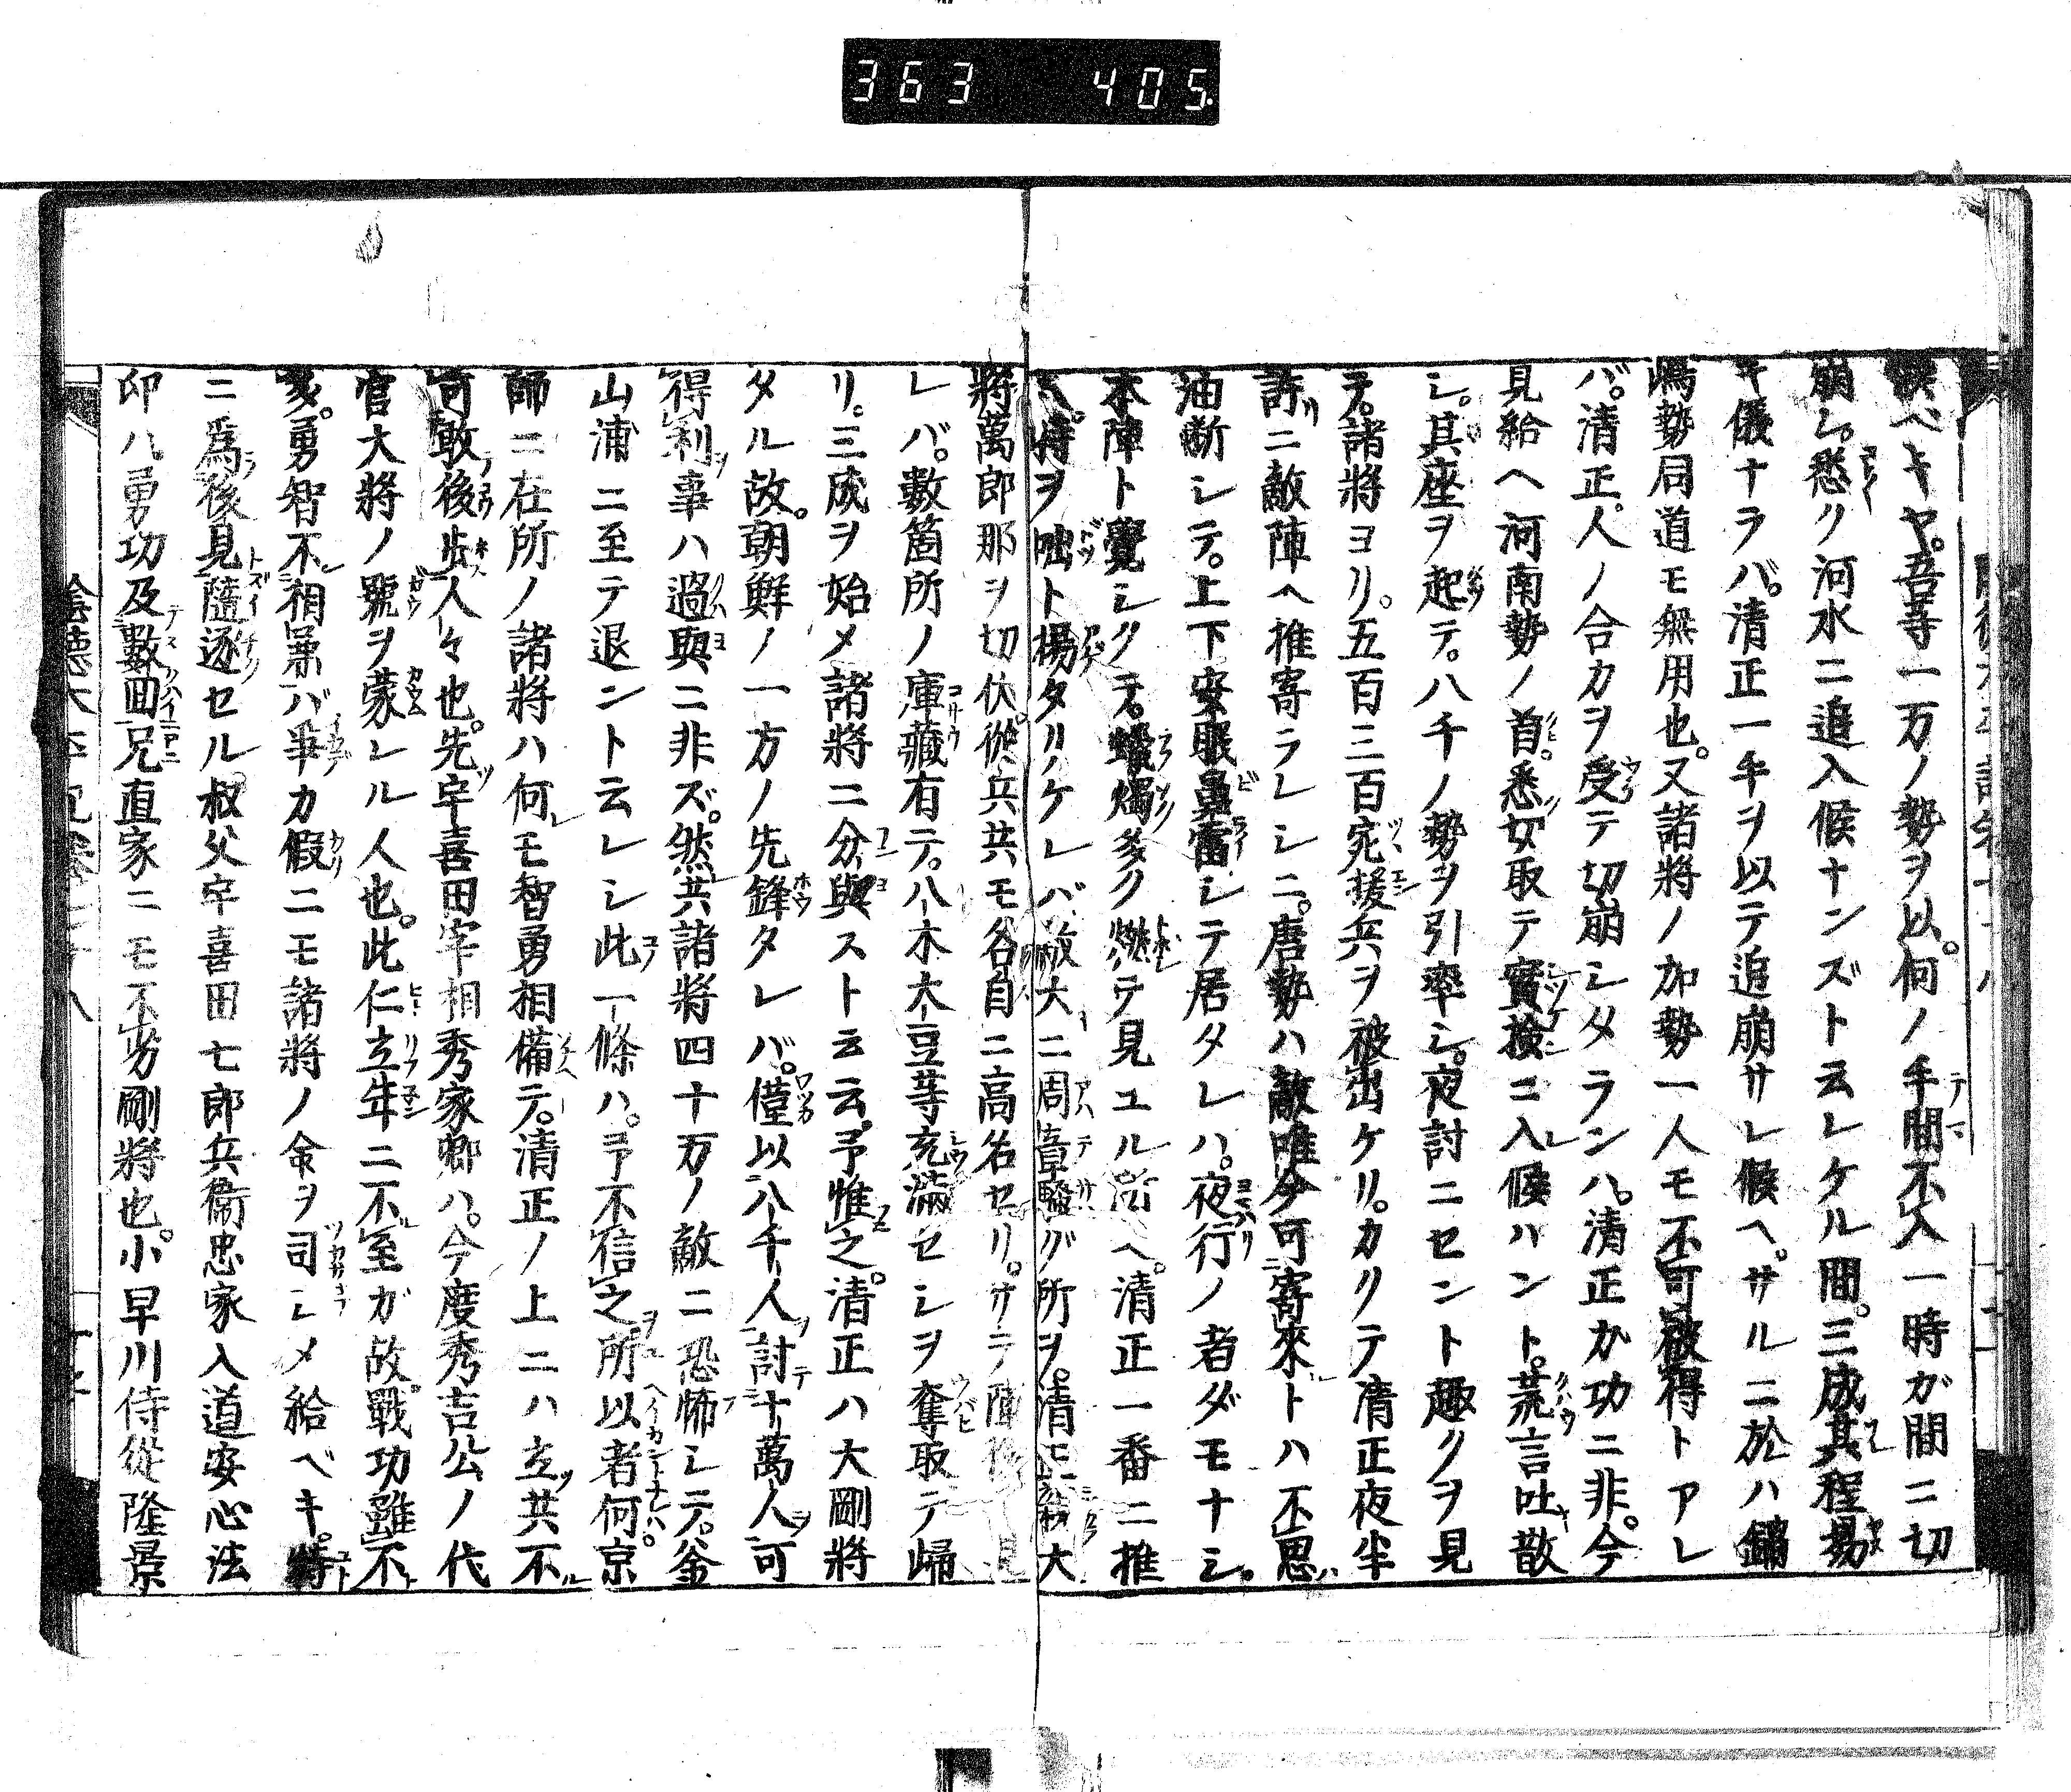 363 405
ベキヤ。吾等一万ノ勢ヲ以。何ノ手間不入一時ガ間ニ切
崩シ。悉ク河水ニ追入候ナンズト云レケル間。三成其程揚
キ儀ナラバ。清正一手ヲ以テ追崩サレ候ヘ。サルニ於ハ鍋
嶋勢同道モ無用也。又諸將ノ加勢一人モ不可被得トアレ
バ。清正。人ノ合カヲ受テ切崩シタランハ。清正カ功ニ非。今
見給ヘ河南勢ノ首。悉ク取テ實檢ニ入候ハント。荒言吐散
シ。其座ヲ起テ。八千ノ勢ヲ引率シ。夜討ニセント趣クヲ見
テ。諸將ヨリ。五百三百宛援兵ヲ被出ケリ。カクテ清正夜半
許ニ敵陣ヘ推寄ラレシニ。唐勢ハ敵唯今可寄來トハ不思
油断シテ。上下安眠鼻雷シテ居タレハ。夜行ノ者ダモナシ。
本陣ト覺シクテ。蠟燭多ク燃テ見ユル所ヘ。清正一番ニ推
入。時ヲ咄ト揚タリケレバ敵大ニ周章騒グ所ヲ。清正敵大
將萬郎那ヲ切伏。從兵共モ各自ニ高名セリ。サテ陣
レバ。數箇所ノ庫藏有テ。八木大豆等充滿セシヲ奪取テ歸
リ。三成ヲ始メ諸將ニ分與ストス云。予惟之。清正ハ大剛將
タル故。朝鮮ノ一方ノ先鋒タレバ。僅以八千人討十萬人可
得利事ハ過與ニ非ズ。然共諸將四十万ノ敵ニ恐怖シテ。釜
山浦ニ至テ退ントス云レシ此一條ハ。予不信之。所以者何。京
師ニ在所ノ諸將ハ何モ智勇相備テ。清正ノ上ニハ立共不
可敢後歩人々也。先宇喜田宰相秀家卿ハ。今度秀吉公ノ代
官大將ノ號ヲ蒙レル人也。此仁立年ニ不至ガ故戰功雖不
多。勇智不相兼バ爭カ假ニモ諸將ノ命ヲ司シメ給ベキ。特
ニ爲後見隨逐セル叔父宇喜田七郎兵衞忠家入道安心法
印ハ勇功及數囬兄直家ニモ不劣剛將也。小早川侍從隆景
陰德太平記卷